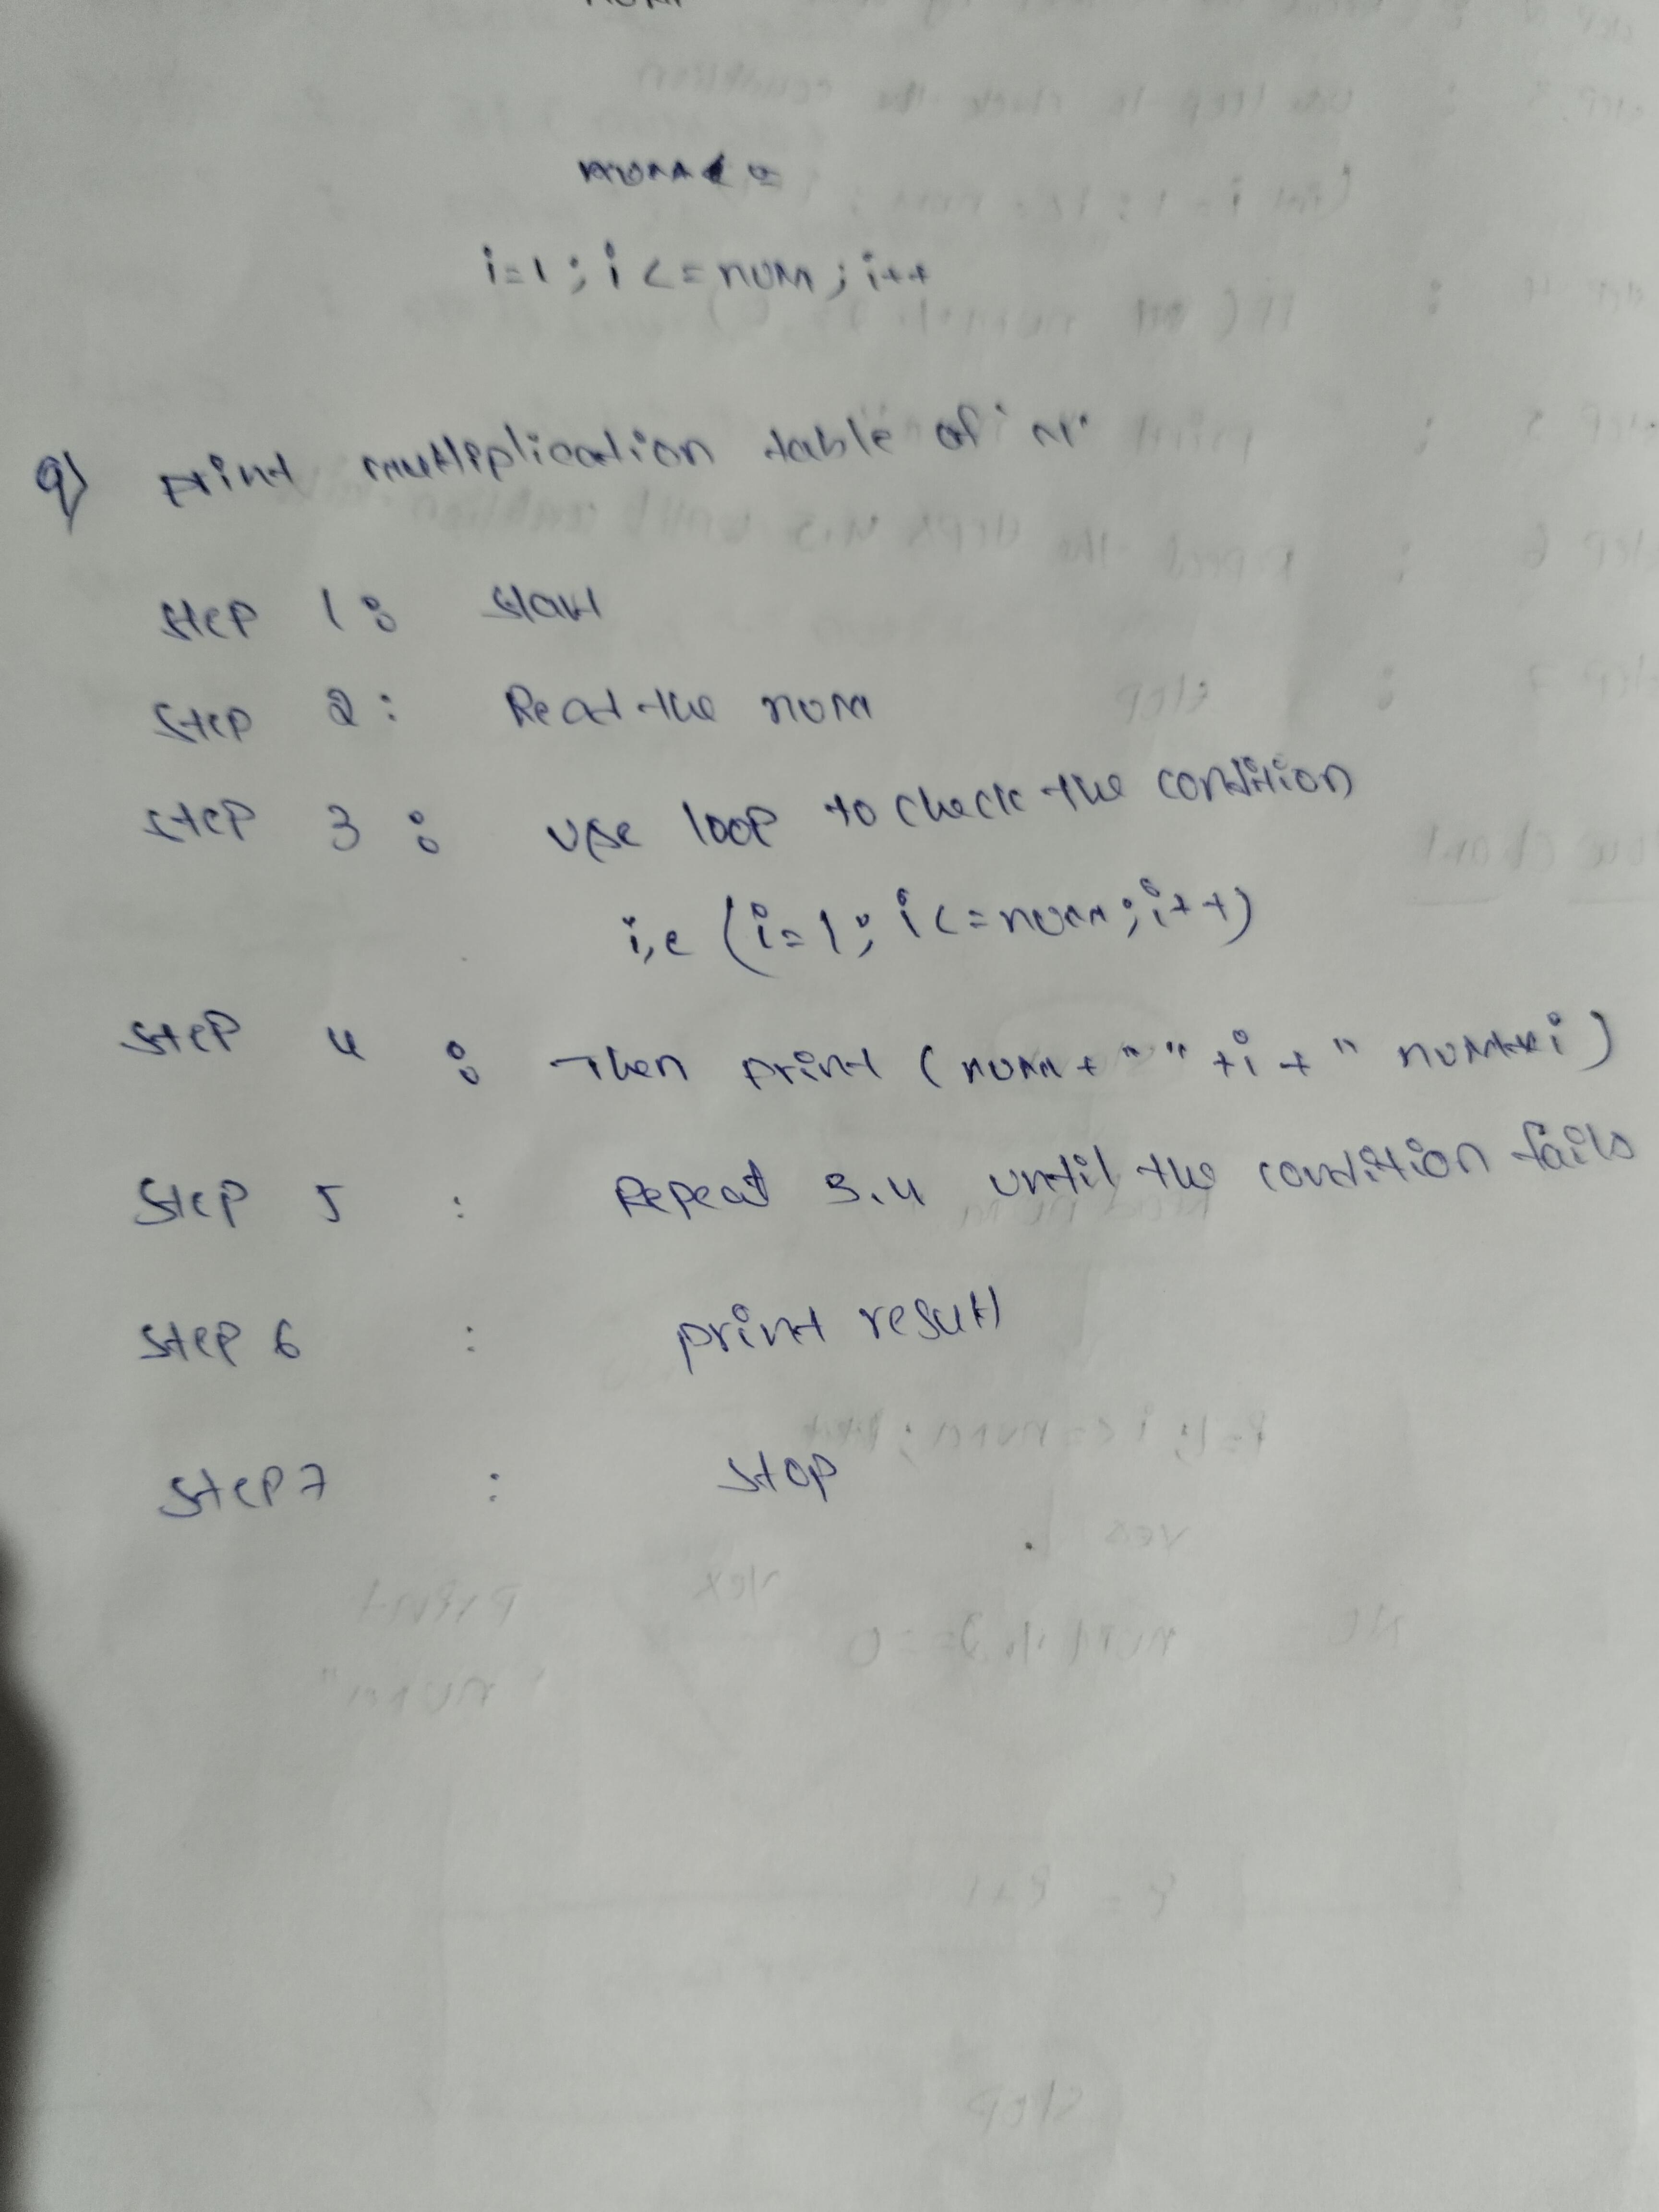 i=1; i<=num; i++
9) print multiplication table of N
Step 1: Start
Step 2: Read the num
Step 3: use loop to check the condition
i,e (i=1; i<=num; i++)
Step 4: Then print (num + " " + i + " num*i)
Step 5: Repeat 3.4 until the condition fails
Step 6: print result
Step 7: Stop